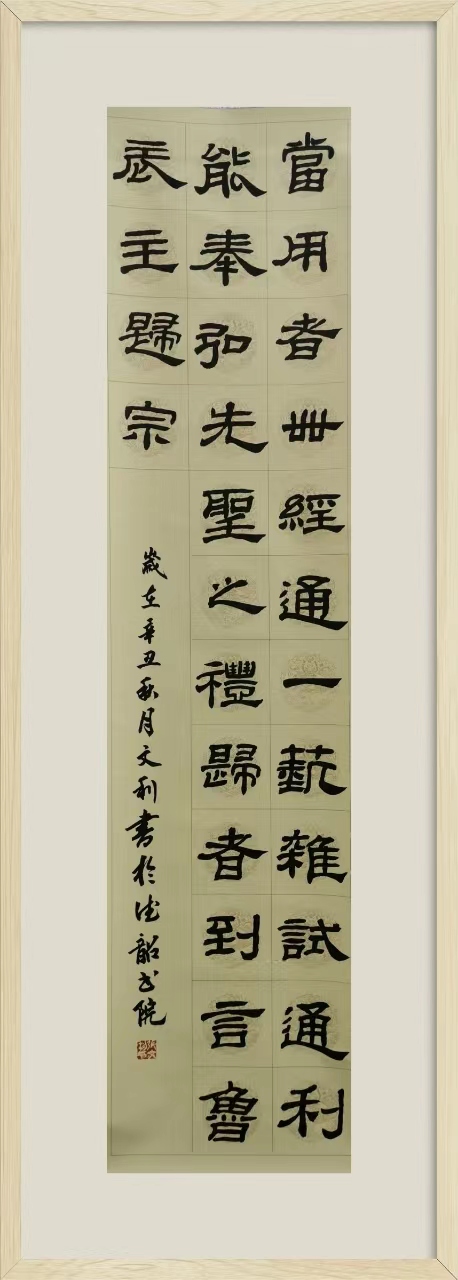 當用者卌經通一埶雜試通利
能奉弘先聖之禮歸者到言魯
辰主歸宗
歲在辛丑秋月文利書於德韶書院